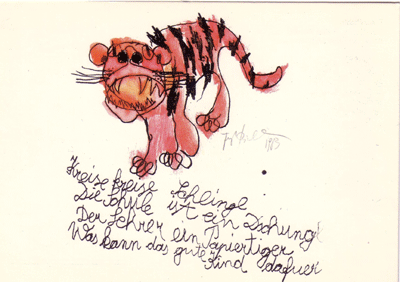 1983
Kreise Kreise Schlinge
Die Schule ist ein Dschungl
Der Lehrer ein Papiertiger
Was kann das gute Kind dafuer